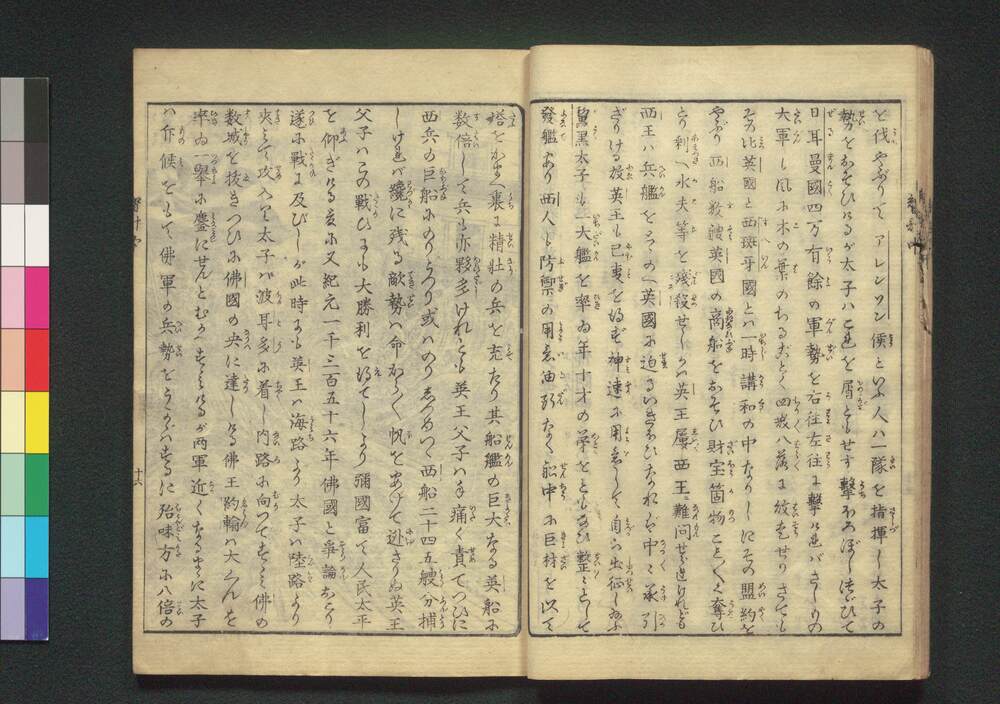 を伐やぶりてアレンソン侯といふ人ハ一隊を指揮し太子の
勢をおそひけるが太子ハこれを屑ともせず撃ほろぼしつゞひて
日耳曼國四万有餘の軍勢を右往左往に撃ければさしもの
大軍も風に木の葉のちるごとく四夷八落に敗走せりさても
その比英國と西班牙國とハ一時講和の中なりしにその盟約を
やぶり西船数艘英國の商船をおそひ財宝箇物ことごとく奪ひ
とり剰へ水夫等を殘殺せしかバ英王屢西王を難問せられけれども
西王ハ兵艦をそろへ英國に迫るいきほひなれバ中々承引
ざりける故英王も已事を得ず神速に用意して自ら出征し給ふ
黒太子も大艦を率ゐ年十才の弟をともなひ整々として
發艦あり西人も防禦の用意油断なく船中に巨材を以て
塔をかまへ裏に精壮の兵を充たり其船艦の巨大なる英船に
数倍して兵も亦夥多けれども英王父子ハ手痛く責てつひに
西兵の巨船にのりうつり或ハのりしづめつゝ西船二十四五艘分捕
しければ残る敵勢ハ命からく帆をあげて逃さりぬ英王
父子ハこの戦ひにも大勝利を得てしより彌國富て人民太平
を仰ぎける爰に又紀元一千三百五十六年佛國と爭論おこり
遂に戦に及びしが此時にも英王ハ海路より太子ハ陸路より
夾みて攻入り太子ハ波耳多に着し内路に向つてすゝみ佛の
数城を抜きつひに佛國の央に達しける佛王趵翰ハ大くんを
率ゐ一擧に鏖にせんとむかへすゝみけるが両軍近くなるまゝに太子
ハ斥候をもて佛軍の兵勢をうかゞハするに殆味方に八倍の
十六